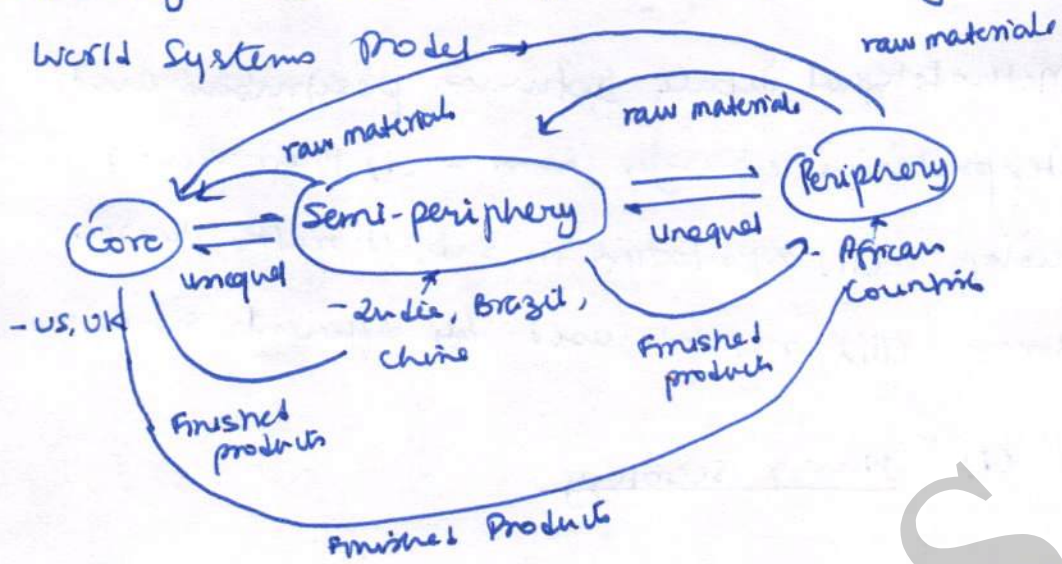 World Systems Model
raw materials
raw materials
raw materials
Core
Semi-periphery
Periphery
unequal
unequal
- US, UK
- India, Brazil,
China
- African
Countries
Finished
products
Finished
products
Finished Products